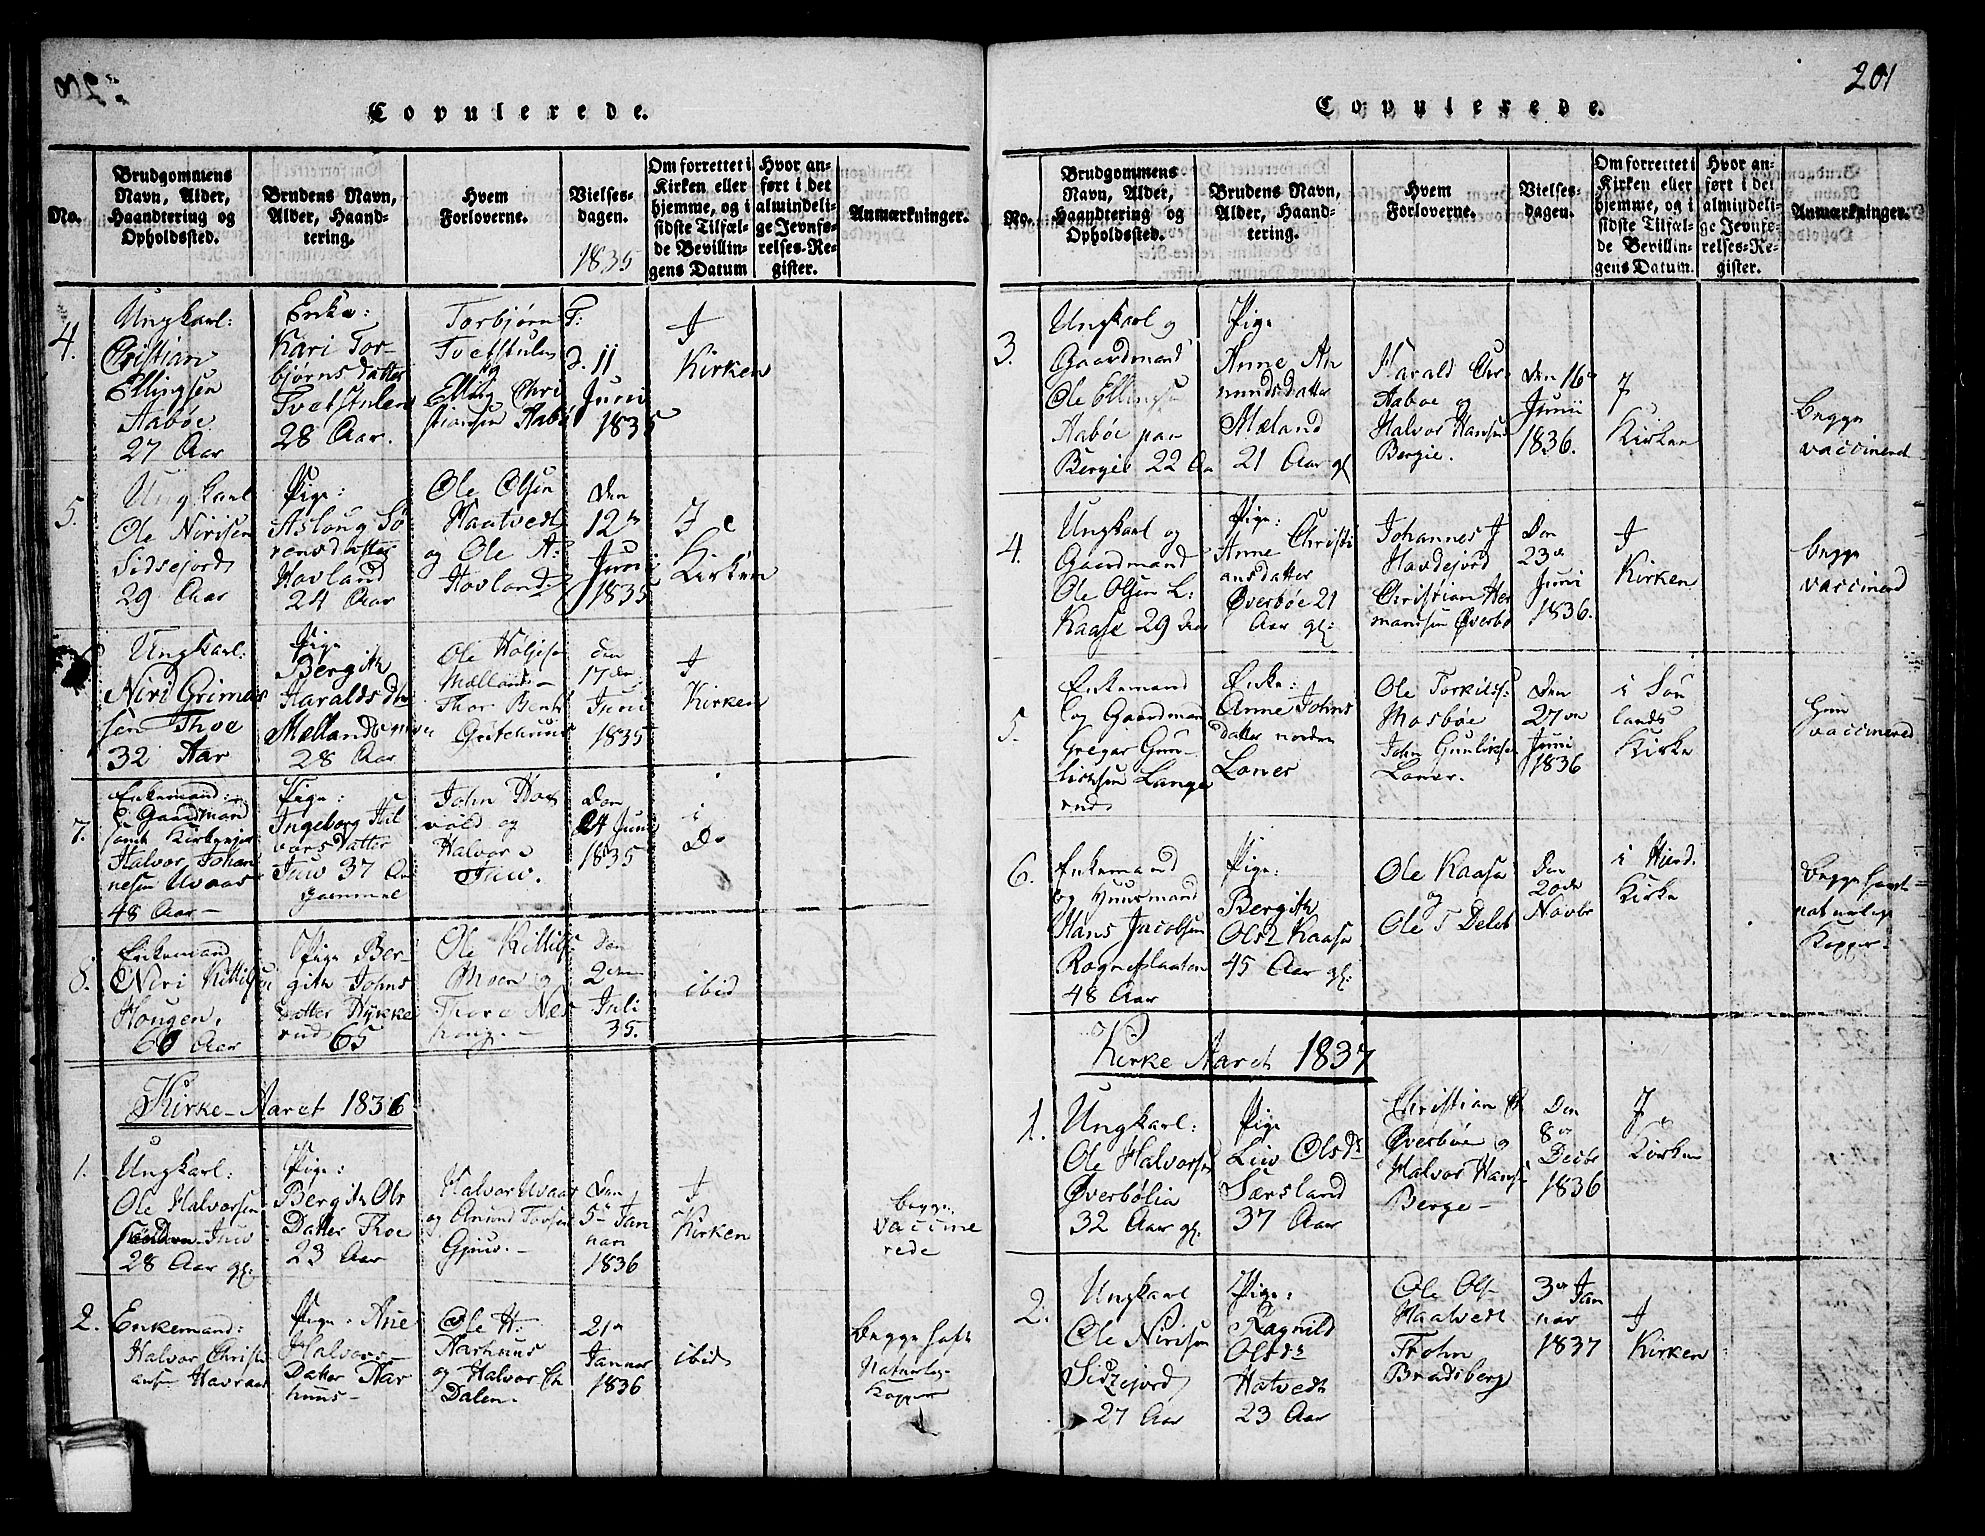 Copulerede.
No.
Brudgommens
Navn, Alder,
Haandtering og
Opholdssted.
Brudens Navn,
Alder, Haand-
tering.
Hvem
Forloverne.
Vielses-
dagen.
1835
Om forrettet i
Kirken eller
hjemme, og i
sidste Tilfæl-
de Bevillin-
gens Datum
Hvor an-
ført i det
almindeli-
ge Jevnfø-
relses-Re-
gister.
Anmærkninger.
4.
Ungkarl:
Cristian
Ellingsen
Aabøe
27 Aar
Enke:
Kari Tor-
bjørnsdatter
Tvetstulen
28 Aar.
Torbjørn T:
Tvetstulen
og
Elling Chri
stiansen Aabøe
d. 11
Juni
1835
I
Kirken
5.
Ungkarl
Ole Nirisen
Sidsejord
29 Aar
Pige:
Aslaug Sø-
rensdatter
Hovland
24 Aar
Ole Olsen
Haatvedt
og Ole A:
Hovland
den
12te
Juni
1835
I
Kirken
Ungkarl:
Niri Grimas
sen Thoe
32 Aar
Pige
Bergith
Haralds
Mælland
28 Aar
Ole Høljesen
Mælland
Thor Bent
den
17de
Juni
1835
I
Kirken
7.
Enkemand:
Gaardmand
samt Kirkeværger
Halvor Johan
nesen Uvaas
48 Aar
Pige:
Ingeborg Hal
vorsdatter
Juv 37 Aar
gammel
John Hov
vold og
Halvor
Juv.
Den
24 Juni
1835
i
Do
8.
Enkemand
Niri Kittilsen
Hougen,
60 Aar
Pige Ber-
gith Johns
datter Hykke
rud 65
Ole Kittils
Moen og
Thore Nes
houg
Den
2den
Juli
35.
ibid
Kirke-Aaret 1836
1.
Ungkarl:
Ole Halvorsen
Juv
28 Aar gl:
Pige:
Bergith Ols
Datter Thoe
23 Aar
Halvor Uvaas
og Anund Torsen
Gjuv.
Den
5te Jan
nari
1836
I
Kirken
begge
vaccine
rede
2.
Enkemand:
Halvor Christi
ansen Havraas
Pige: Ane
Halvors-
Datter Aar
huus
Ole H.
Aarhuus
og Halvor Ch
Dalen.
21de
Januar
1836
ibid
Begge havt
Naturlig-
Kopper
201
Copulerede.
No.
Brudgommens
Navn, Alder,
Haandtering og
Opholdssted.
Brudens Navn,
Alder, Haand-
tering.
Hvem
Forloverne.
Vielses-
dagen.
Om forrettet i
Kirken eller
hjemme, og i
sidste Tilfæl-
de Bevillin-
gens Datum.
Hvor an-
ført i det
almindeli-
ge Jevnfø-
relses-Re-
gister.
Anmærkninger.
3.
Ungkarl og
Gaardmand
Ole Ellingsen
Aabøe paa
Bergie 22 Aar
Pige
Anne An
nundsdatter
Mæland
21 Aar gl
Harald Chr
Aaboe og
Halvor Hansen
Bergie.
Den 16de
Junii
1836.
I
Kirken
begge
vaccinered
4.
Ungkarl og
Gaardmand
Ole Olsen L:
Kaase 29 Aar
Pige:
Anne Christi
ansdatter
Øverbøe 21
Aar gl:
Johannes J
Havdejord
Christian Her
mansen Øverbø
Den
23de
Juni
1836.
I
Kirken
begge
vaccinered
5.
Enkemand
og Gaardmand
Gregar Gun-
licksen Lange
rud
Enke:
Anne Johns
datter norden
Loner
Ole Torkilds:
Mosbøe
John Gunlicksen
Loner.
Den
27de
Juni
1836
i Sou
lands
Kirke
Hun
vaccinered
6.
Enkemand
og Huusmand
Hans Jacobsen
Rogneplaaten
48 Aar
Pige:
Bergith
Olsd Kaasa
45 Aar gl:
Ole Kaasa
og
Ole T Deleb
Den
20de
Novbr
i Hierd.
Kirke
Begge havt
naturlige
Kopper-
Kirke Aaret 1837
1.
Ungkarl:
Ole Halvorsen
Øverbølia
32 Aar gl:
Pige
Liv Olsdr
Særsland
37 Aar
Christian H
Øverbøe og
Halvor Hans
Berge-
Den
8de
Decbr
1836
I
Kirken
2.
Ungkarl
Ole Nirisen
Sidzejord
27 Aar
Pige:
Ragnild
Olsdr
Hatvedt
23 Aar
Ole Ols
Haatvedt
Thohn
Bradsberg
3de Jan
nar
1837
I
Kirken